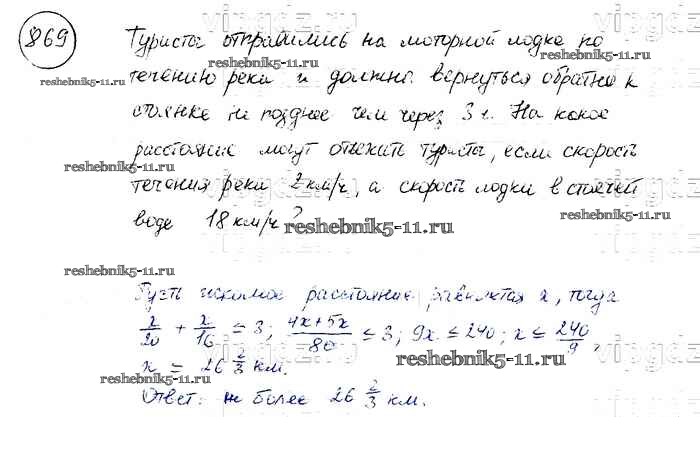 869
Туристы отправились на моторной лодке по
течению реки и должны вернуться обратно к
стоянке не позднее чем через 3 ч. На какое
расстояние могут отплыть туристы, если скорость
течения реки 2 км/ч, а скорость лодки в стоячей
воде 18 км/ч?
Пусть искомое расстояние равняется x, тогда
x/20 + x/16 ≤ 3; (4x+5x)/80 ≤ 3; 9x ≤ 240; x ≤ 240/9,
x = 26 2/3 км.
Ответ: не более 26 2/3 км.
reshebnik5-11.ru
reshebnik5-11.ru
reshebnik5-11.ru
reshebnik5-11.ru
reshebnik5-11.ru
reshebnik5-11.ru
reshebnik5-11.ru
reshebnik5-11.ru
reshebnik5-11.ru